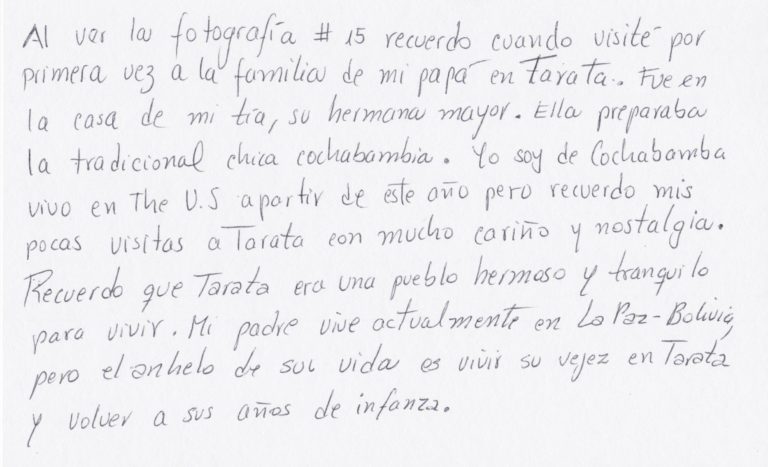 Al ver la fotografía # 15 recuerdo cuando visité por
primera vez a la familia de mi papá en Tarata. Fue en
la casa de mi tía, su hermana mayor. Ella preparaba
la tradicional chica cochabambia. Yo soy de Cochabamba
vivo en The U.S a partir de este año pero recuerdo mis
pocas visitas a Tarata con mucho cariño y nostalgia.
Recuerdo que Tarata era una pueblo hermoso y tranquilo
para vivir. Mi padre vive actualmente en La Paz-Bolivia,
pero el anhelo de su vida es vivir su vejez en Tarata
y volver a sus años de infanza.